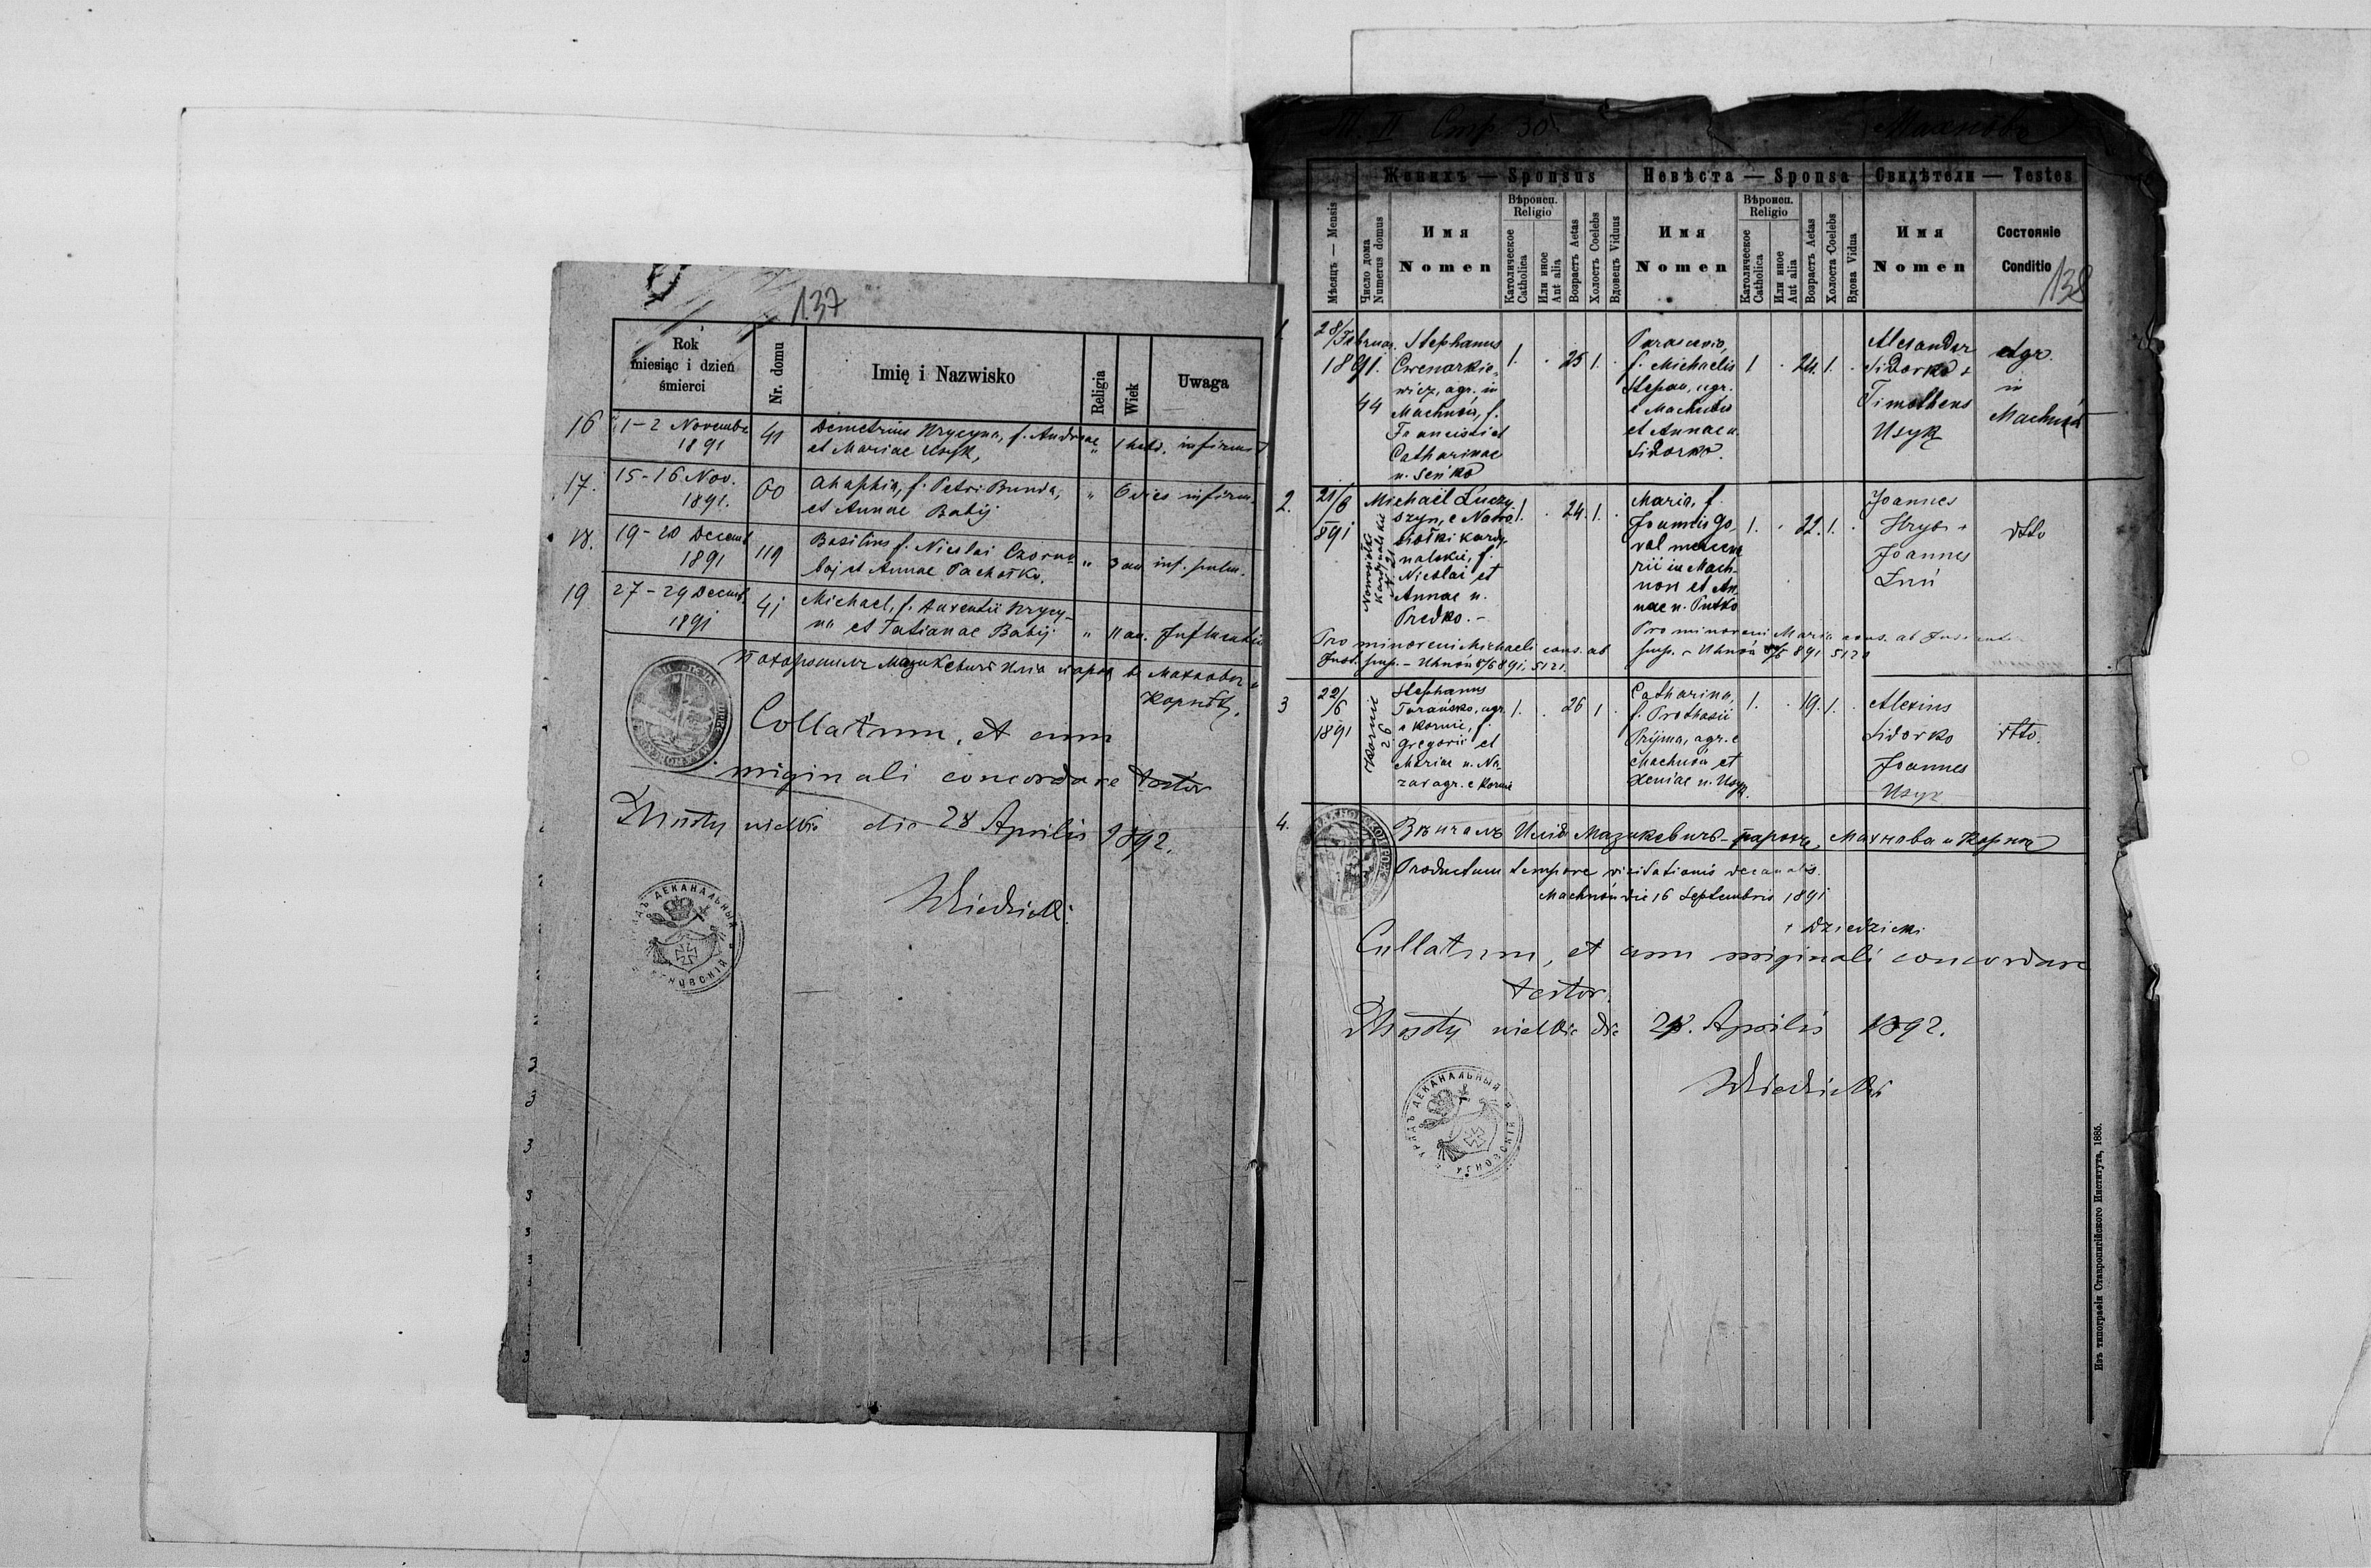 137
Rok
miesiąc i dzień
śmierci
Nr. domu
Imię i Nazwisko
Religia
Wiek
Uwaga
16
1-2 Novembr
1891
41
Demetrius Hrycyna, f. Andreae
et Mariae Usyk,
"
infirmit
17.
15-16 Nov.
1891.
60
Ahaphia, f. Petri Bunda,
et Annae Babij
"
6 dies
infirm.
18.
19-20 Decemb
1891
119
Basilius f. Nicolai Czorno-
baj et Annae Pachołko.
"
3 an.
inf. pulm.
19
27-29 Decemb.
1891
41
Michael, f. Auxentii Hrycy-
na et Tatianae Babij
"
11 an.
Influentia
Похоронилъ Мазикевичъ Илія парох в. Махновъ и
Корнѣ.
Collatum, et cum
originali concordare testor
Mosty wielkie die 28 Aprilis 1892.
ДЕКАНАЛЬНЫЙ
Т. II Стр. 30
Махновъ
138
Женихъ — Sponsus
Невѣста — Sponsa
Свидѣтели — Testes
Мѣсяцъ — Mensis
Число дома
Numerus domus
Имя
Nomen
Вѣроисп.
Religio
Католическое
Catholica
Или иное
Aut alia
Возрастъ Aetas
Холостъ Coelebs
Вдовецъ Viduus
Имя
Nomen
Вѣроисп.
Religio
Католическое
Catholica
Или иное
Aut alia
Возрастъ Aetas
Холоста Coelebs
Вдова Vidua
Имя
Nomen
Состояніе
Conditio
1.
28/Februar.
1891.
44
Stephanus
wicz, agr. in
Machnów, f.
Francisci et
Catharinae
n. Seńko
1. . 25 1. .
Parascevia,
f. Michaelis
Stepan, agr.
e Machnów
et Annae n.
Sidorko.
1 . 24. 1. .
Alexander
Sidorko +
Timotheus
Usyk
Agr.
in
Machnów
2.
21/6
891
Nowosiółki
Kardynalskie
N. 21
Michael Łuczy-
szyn, e Nowo-
siołki kardy-
nalskie, f.
Nicolai et
Annae n.
Predko. -
1. . 24. 1. .
Maria, f.
Joannis Go-
val mercena
rii in Mach-
now et An-
nae n. Putko
1. . 22. 1. .
Joannes
Hryb +
Joannes
dtto
Pro minoreni Michaeli cons. ab
Jud. - Uhnów 8/6 891, 5121.
Pro minoreni Maria cons. ab
Uhnów 8/6 891 5120
3
22/
/6
1891
Kornie
26
Stephanus
Toransko, agr.
e Kornie, f.
Gregorii et
Mariae n. Na-
zar agr. e Kornie
1. . 26 1 .
Catharina,
f. Prothasii
Pryjma, agr. e
Machnów et
Xeniae n. Usyk.
1. . 19. 1. .
Alexius
Sidorko
Joannes
Usyk
dtto.
4.
Вѣнчалъ Илія Мазикевичъ - парохъ, Махнова и Корнѣ
Productum tempore visitationis decanalis.
Machnów die 16 Septembris 1891
Dziedzicki
Collatum, et cum originali concordare
testor.
Mosty wielkie die 28. Aprilis 1892.
Dziedzicki
УРЯДЪ ДЕКАНАЛЬНЫЙ
Изъ типографіи Ставропигійского Института, 1885.